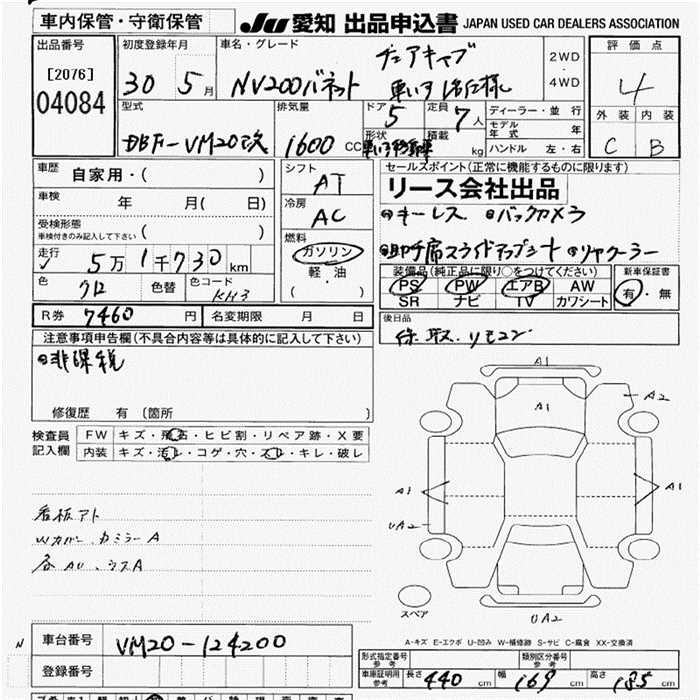 車内保管・守衛保管
JU 愛知 出品申込書 JAPAN USED CAR DEALERS ASSOCIATION
出品番号 初度登録年月 車名・グレード 評価点
[2076]
04084
30 5月 NV200バネット チェアキャブ
2WD・4WD
4
型式 排気量 ドア 定員 ディーラー・並行
DBF-VM20改 1600 CC 5 7人
モデル年式 年
形状 積載 kg ハンドル 左・右
外装 内装
C B
車歴 自家用・( )
車検 年 月( 日)
受検形態
車検付きのみ記入して下さい ( )
走行 5万1千730km
色 クロ 色替 色コード KH3
R券 7460円 名変期限 月 日
シフト AT
冷房 AC
燃料 ガソリン
軽・油
( ・ )
セールスポイント(正常に機能するものに限ります)
リース会社出品
キーレス バックカメラ
助手席スライドアップシート リヤクーラー
装備品(純正品に限り○をつけてください) 新車保証書
PS PW エアB AW 有・無
SR ナビ TV カワシート
後日品
保、取、リモコン
注意事項申告欄(不具合内容等は具体的に記入して下さい)
非課税
修復歴 有 〔箇所 〕
検査員記入欄
FW キズ・飛石・ヒビ割・リペア跡・X要
内装 キズ・汚レ・コゲ・穴・スレ・キレ・破レ
看板アト
A1
A1
A2
A1
A1
UA2
UA2
スペア
A-キズ E-エクボ U-凹み W-補修跡 S-サビ C-腐食 XX-交換済
車台番号 VM20-124200
登録番号
形式指定番号 参考 類別区分番号 参考
車庫証明用 参考 長さ 440cm 幅 169cm 高さ 185cm